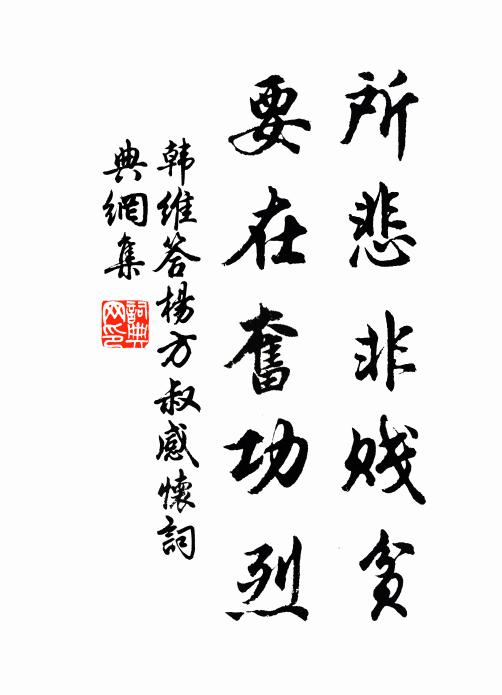 所悲非贱贫
要在奮功烈
韩維答楊方叔感懷詞
典網集
詞典網印